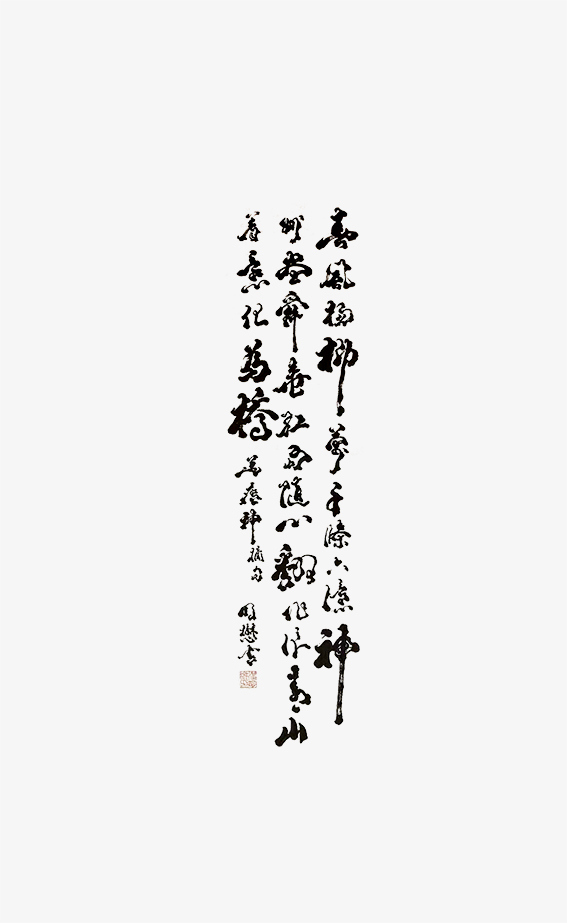 春風楊柳萬千條六億神
州盡舜堯紅雨隨心翻作浪青山
着意化為橋 送瘟神摘句